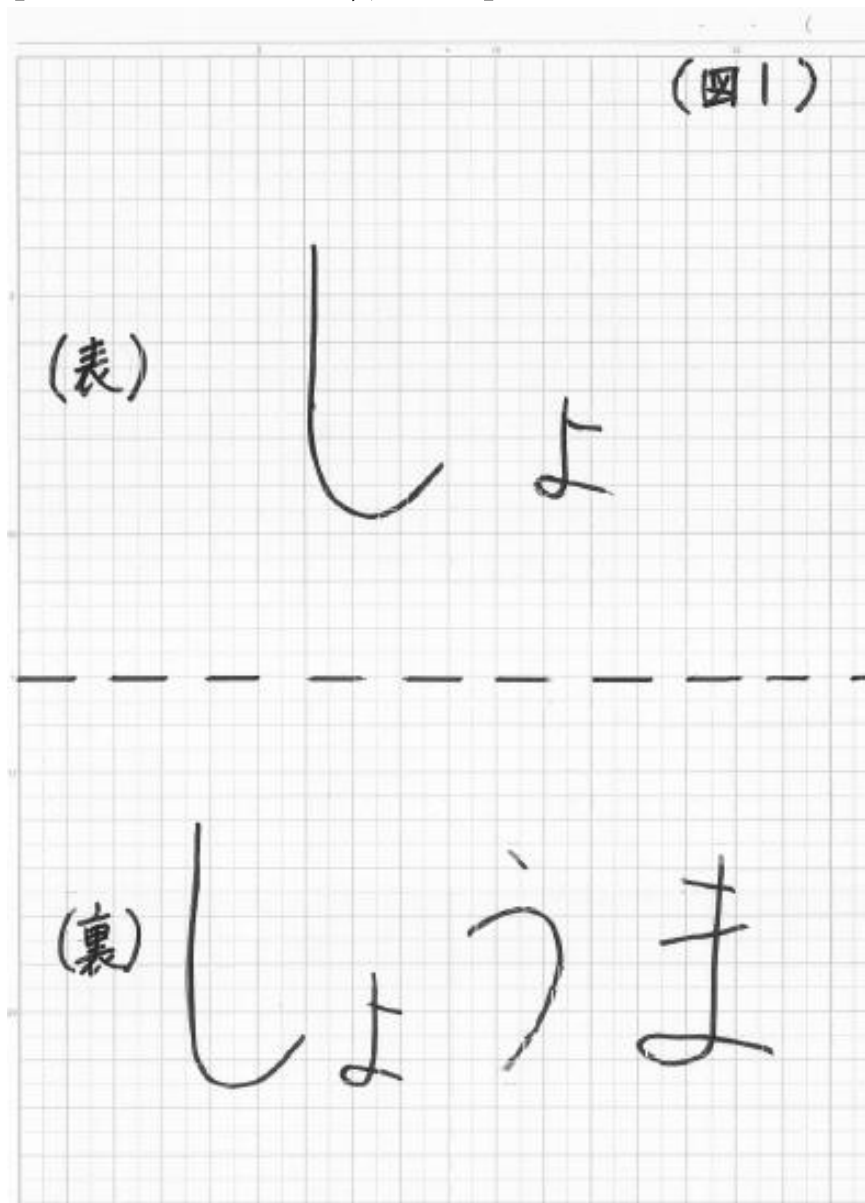 (図1)
(表) しょ
(裏) しょうま